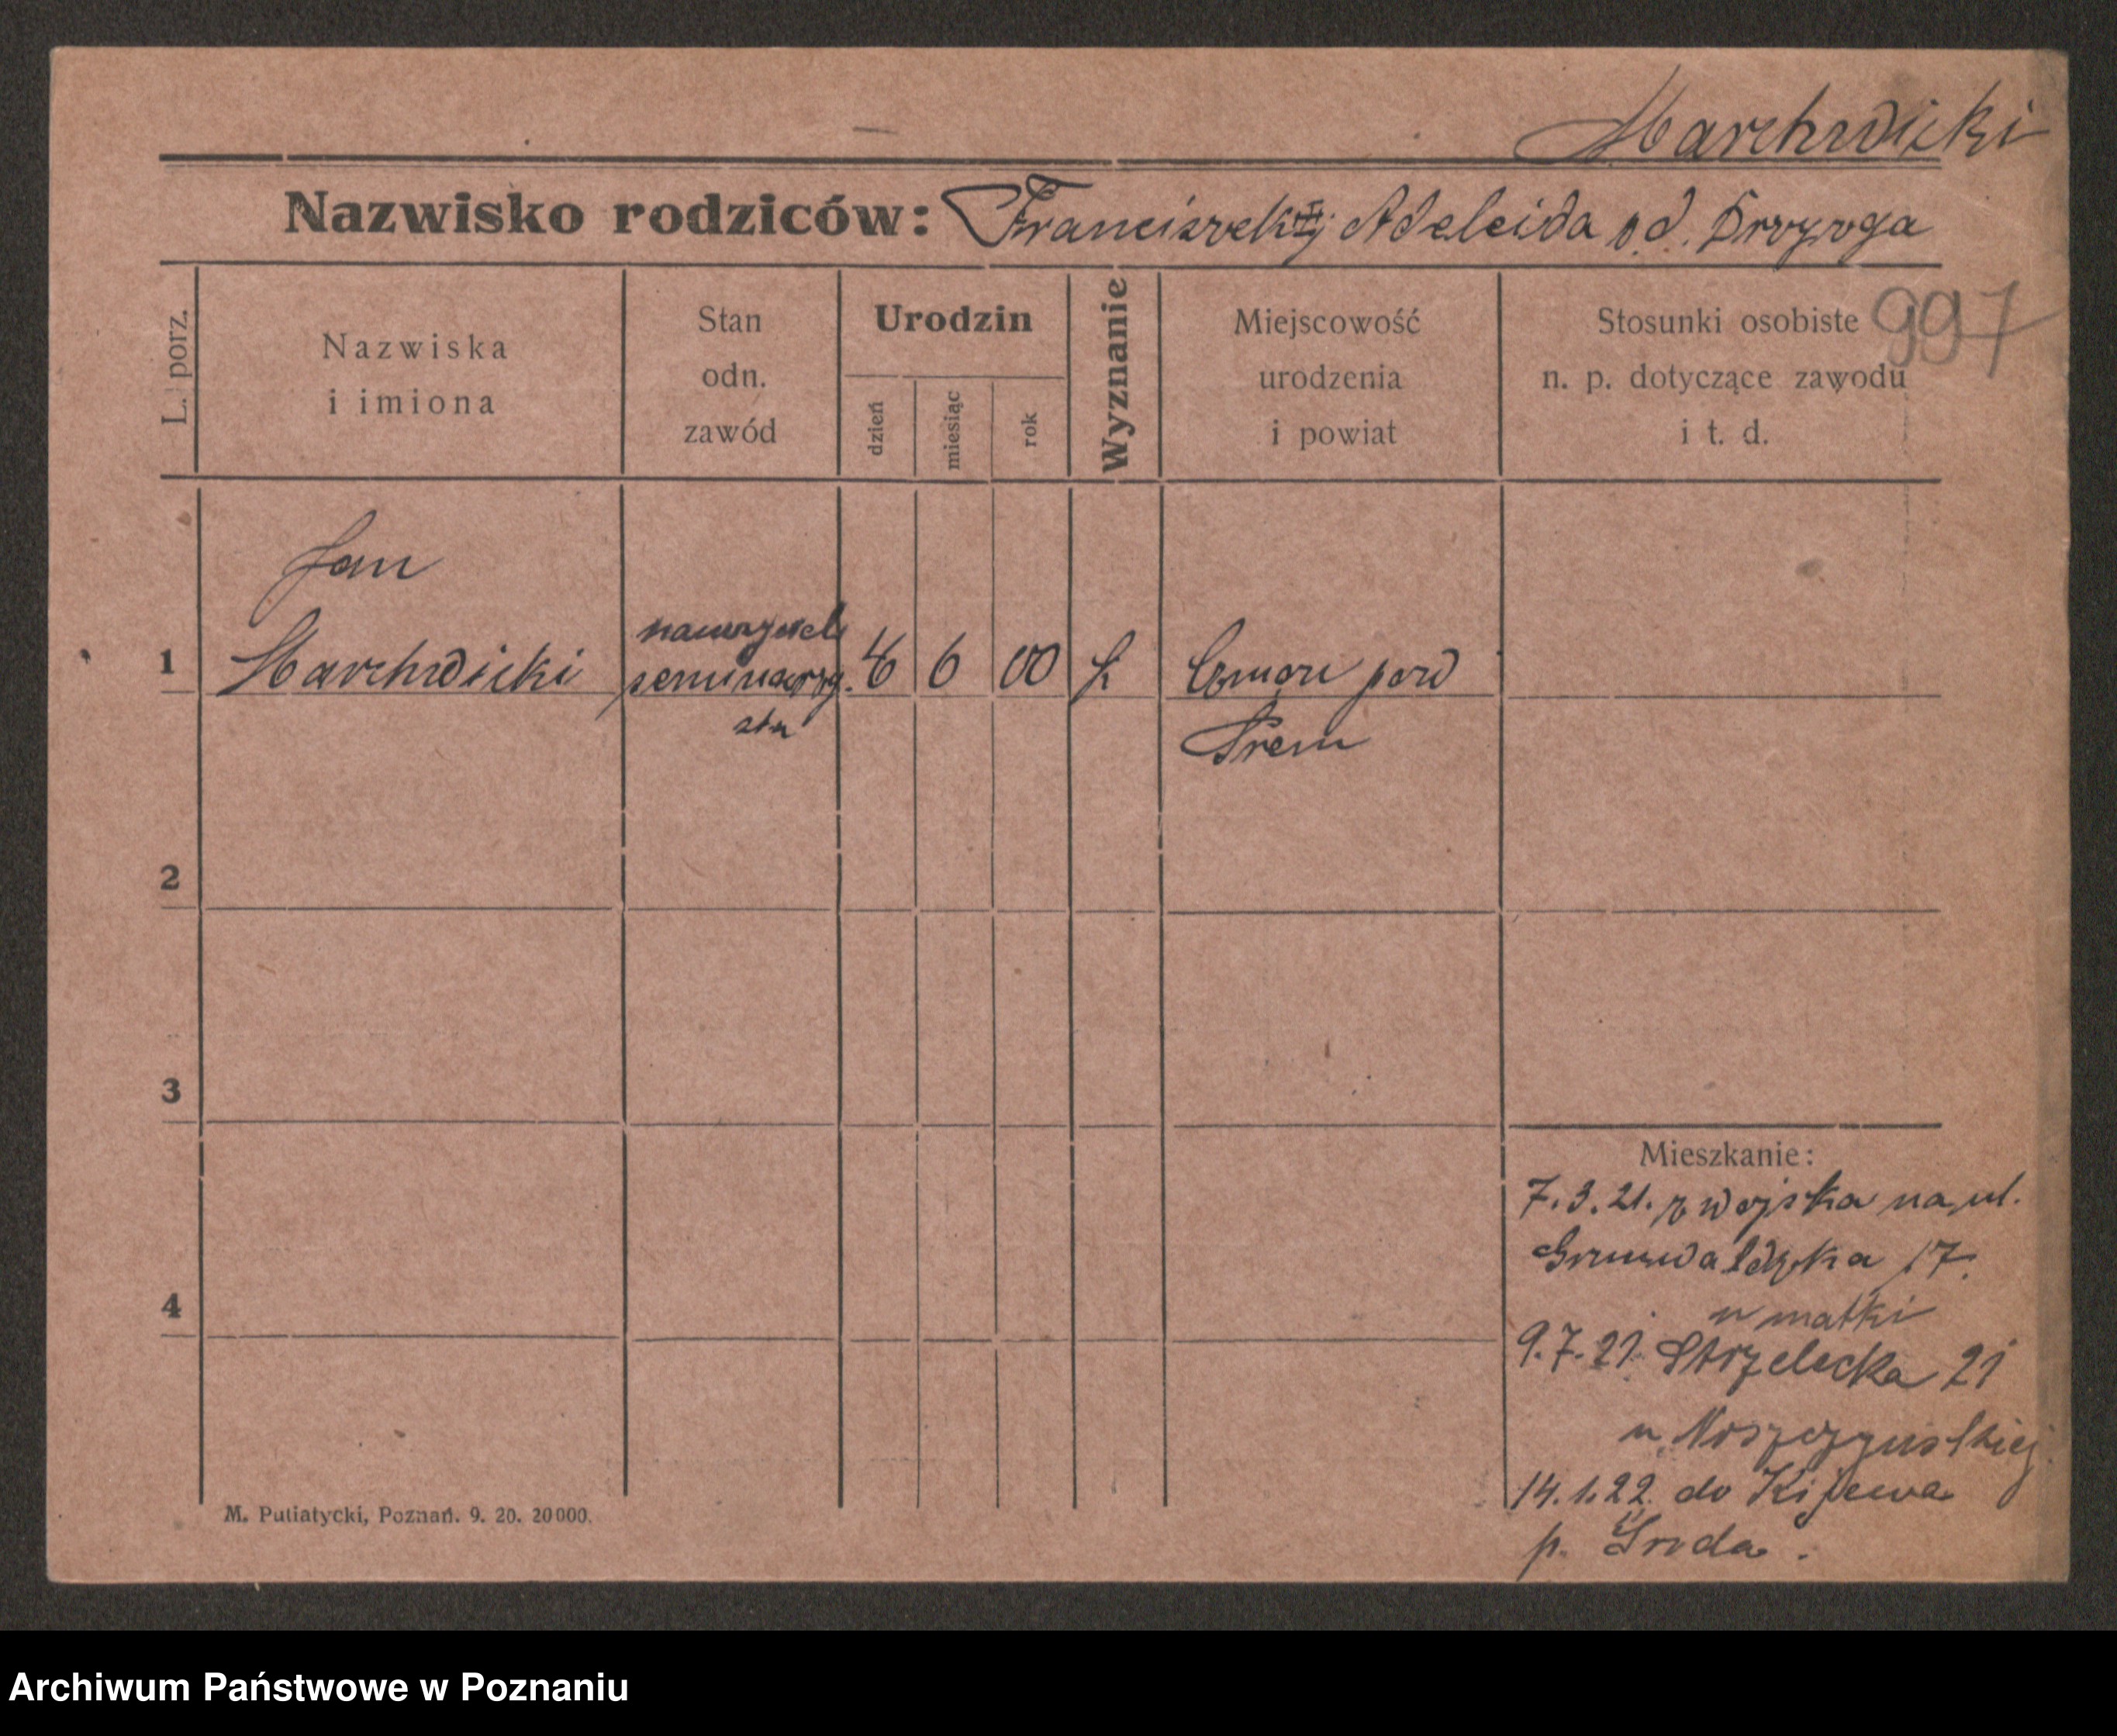 Marchwicki
Nazwisko rodziców: Franciszek i Adeleida od. Drzyzga
997
L. porz.
Nazwiska
i imiona
Stan
odn.
zawód
Urodzin
dzień
miesiąc
rok
Wyznanie
Miejscowość
urodzenia
i powiat
Stosunki osobiste
n. p. dotyczące zawodu
i t. d.
Jan
1 Marchwicki
6 00 k
pow
Srem
2
3
4
Mieszkanie:
7. 3. 21. z wojska na ul.
Grunwaldzka 17.
u matki
9. 7. 21. Strzelecka 21
u
14. 1. 22. do Kijewa
p. Sroda.
M. Putiatycki, Poznań. 9. 20. 20000.
Archiwum Państwowe w Poznaniu